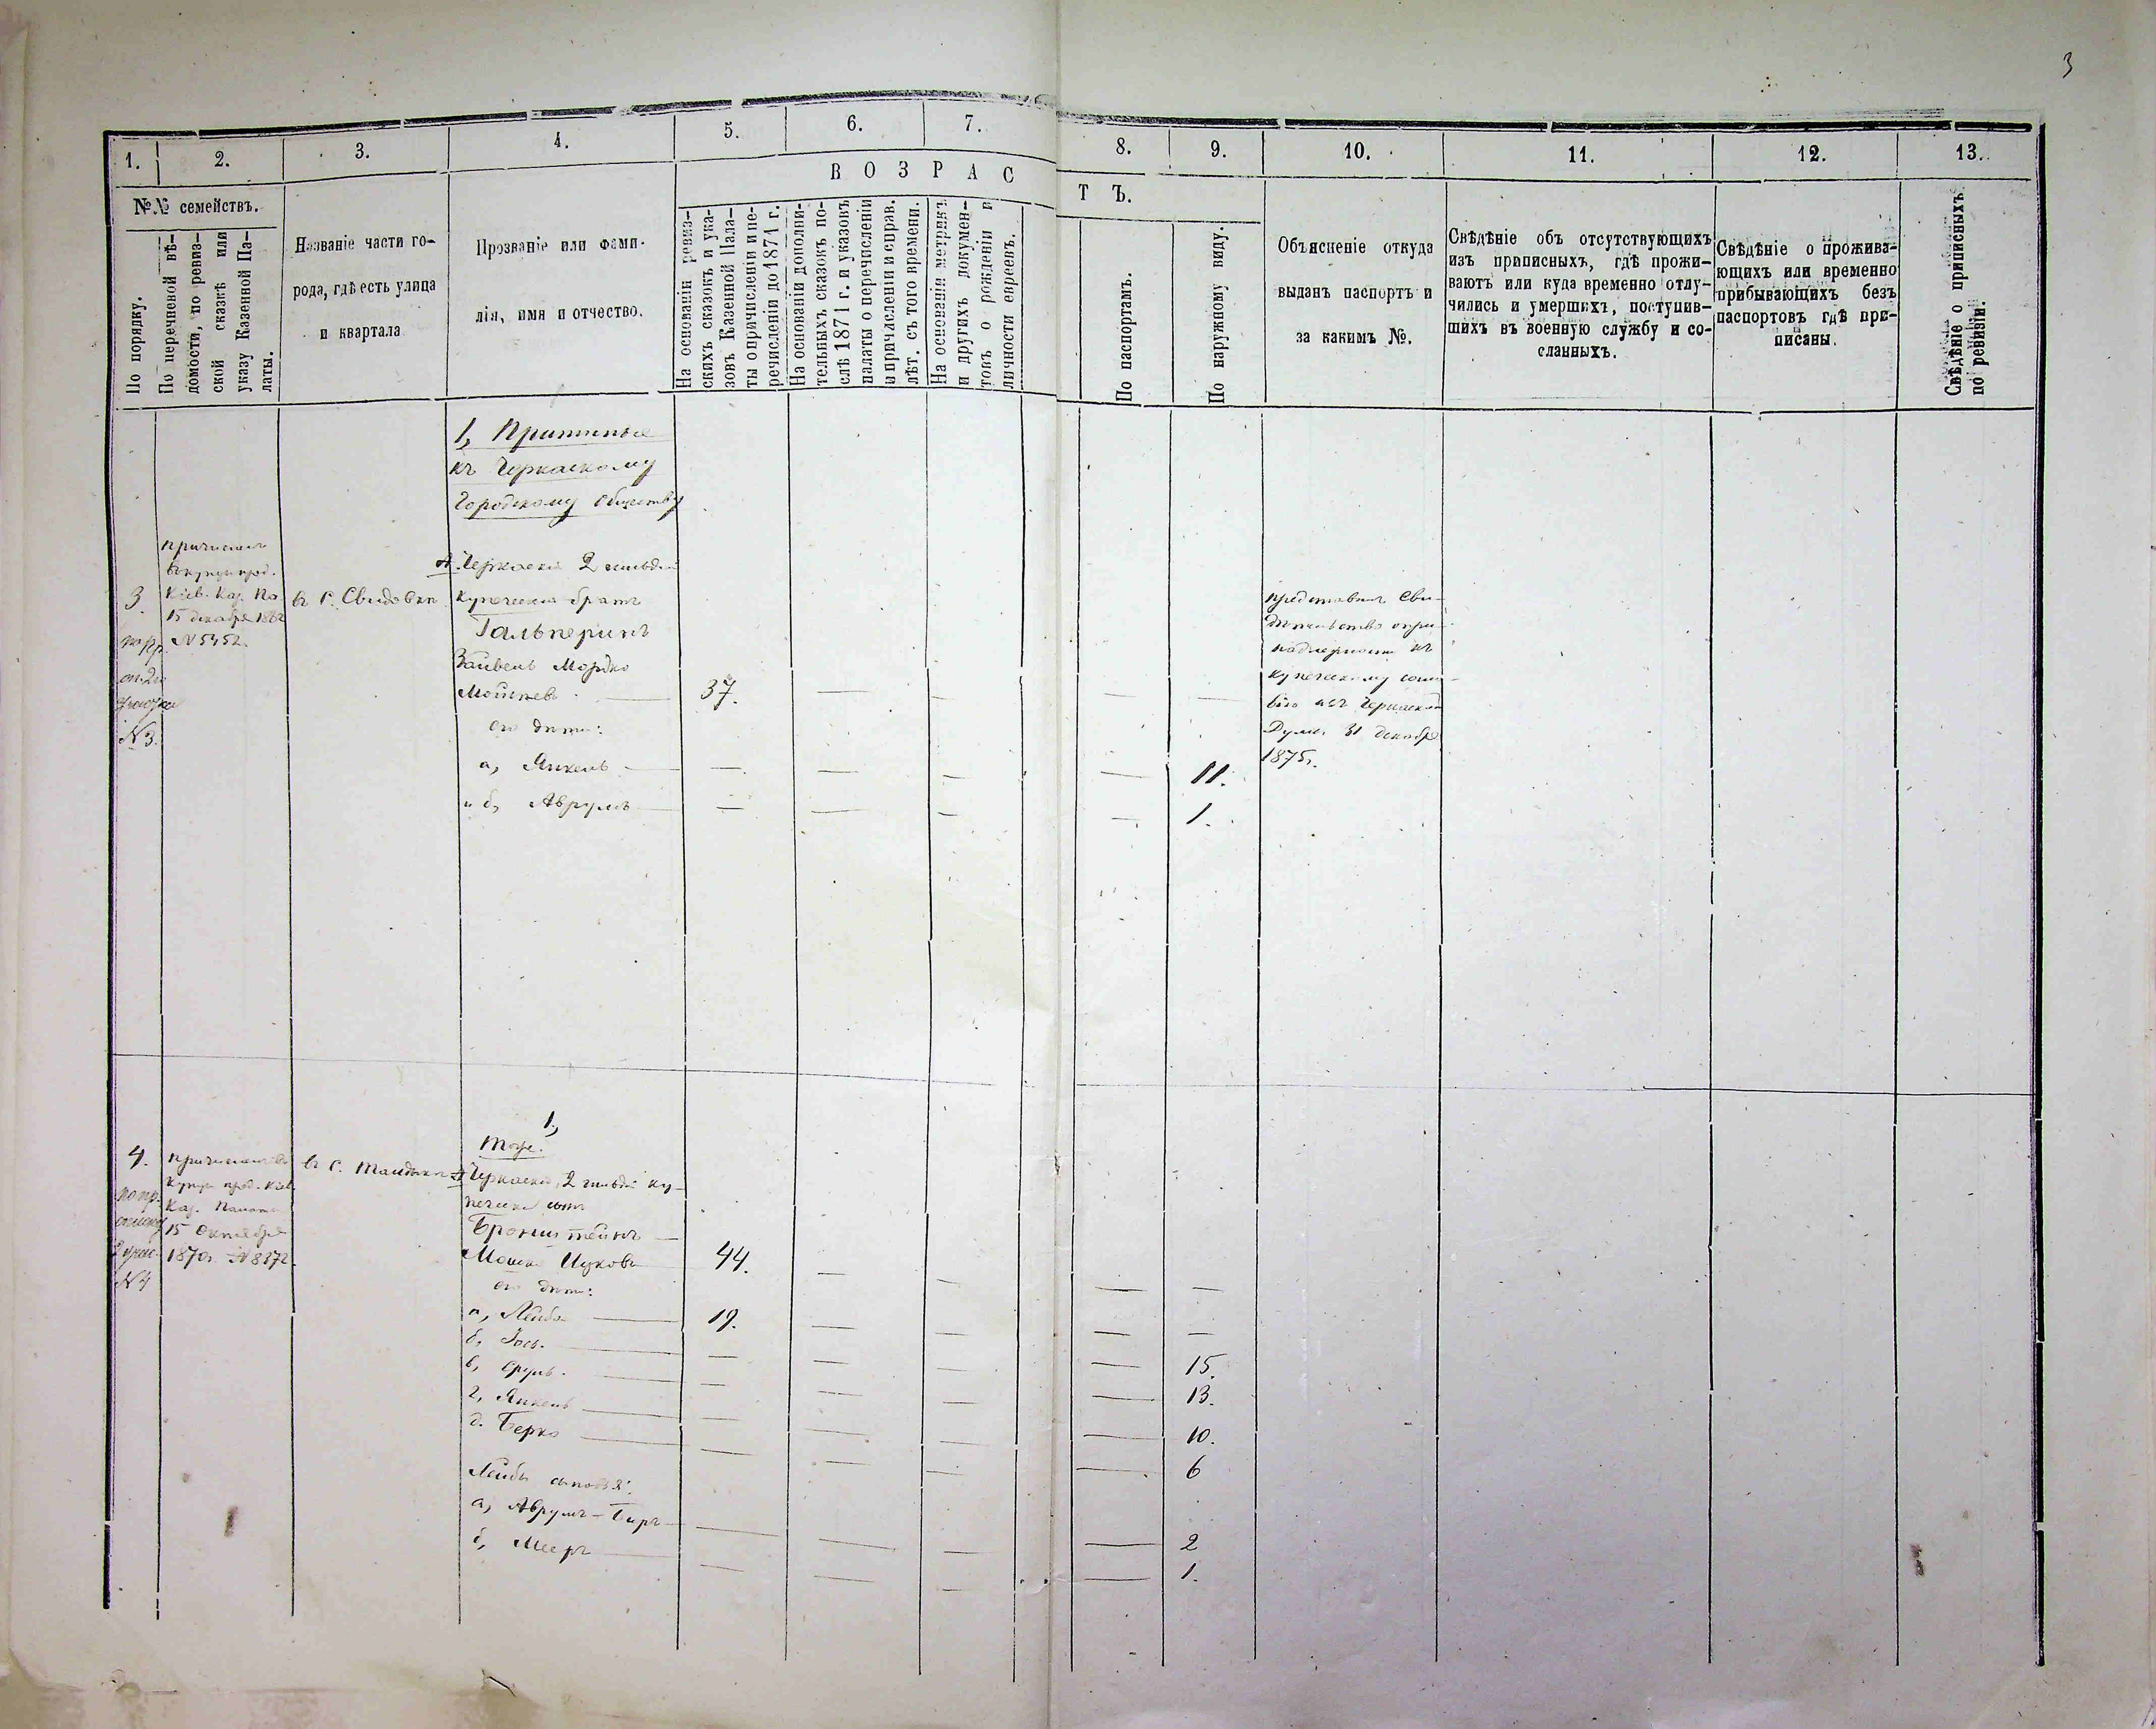 3
1. 2. 3. 4. 5. 6. 7. 8. 9. 10. 11. 12. 13.
ВОЗРАСТЪ.
№№ семействъ.
По порядку.
По перечневой вѣ-
домости, по ревиз-
ской сказкѣ или
указу Казенной Па-
латы.
Названіе части го-
рода, гдѣ есть улица
и квартала
Прозваніе или фами-
лія, имя и отчество.
На основаніи ревиз-
скихъ сказокъ и ука-
зовъ Казенной Пала-
ты о причисленіи и пе-
речисленіи до 1871 г.
На основаніи дополни-
тельныхъ сказокъ по-
слѣ 1871 г. и указовъ
палаты о перечисленіи
и причисленіи и справ.
лѣт. съ того времени.
На основаніи метрикъ
и другихъ докумен-
товъ о рожденіи и
личности евреевъ.
По паспортамъ.
По наружному виду.
Объясненіе откуда
выданъ паспортъ и
за какимъ №.
Свѣдѣніе объ отсутствующихъ
изъ приписныхъ, гдѣ прожи-
ваютъ или куда временно отлу-
чились и умершихъ, поступив-
шихъ въ военную службу и со-
сланныхъ.
Свѣдѣніе о прожива-
ющихъ или временно
прибывающихъ безъ
паспортовъ гдѣ при-
писаны.
Свѣдѣніе о приписныхъ
по ревизіи.
1,
къ Черкаскому
Городскому Обществу
3.
№3.
Кіев. Каз. Па
15 декабря
№ 5452.
въ С. Свидовкѣ
А. Черкаскій 2 гильдіи
купеческій братъ
Гальперинъ
Зайвель Мордко
Мошковъ — 37. — — — —
его дѣти:
а, Янкель — — — — — 11.
и б, Аврумъ — — — — — 1.
Представилъ Сви-
купеческому
Черкаской
Думы 31 декабря
1875г.
4.
№4
Каз. Палаты
15 Октября
1870г. № 8372.
въ С.
1,
Тоже.
Черкаскій 2 гильдіи ку-
печескій сынъ
Бронштейнъ
Мошко Ицковъ — 44. — — — —
его дѣти:
а, Лейба — 19. — — — —
б, Іось. — — — — — 15.
в, Сруль. — — — — — 13.
г, Янкель — — — — — 10.
д. Берко — — — — — 6
Лейбы сыновья:
а, Аврумъ-Беръ — — — — — 2
б, Мееръ — — — — — 1.